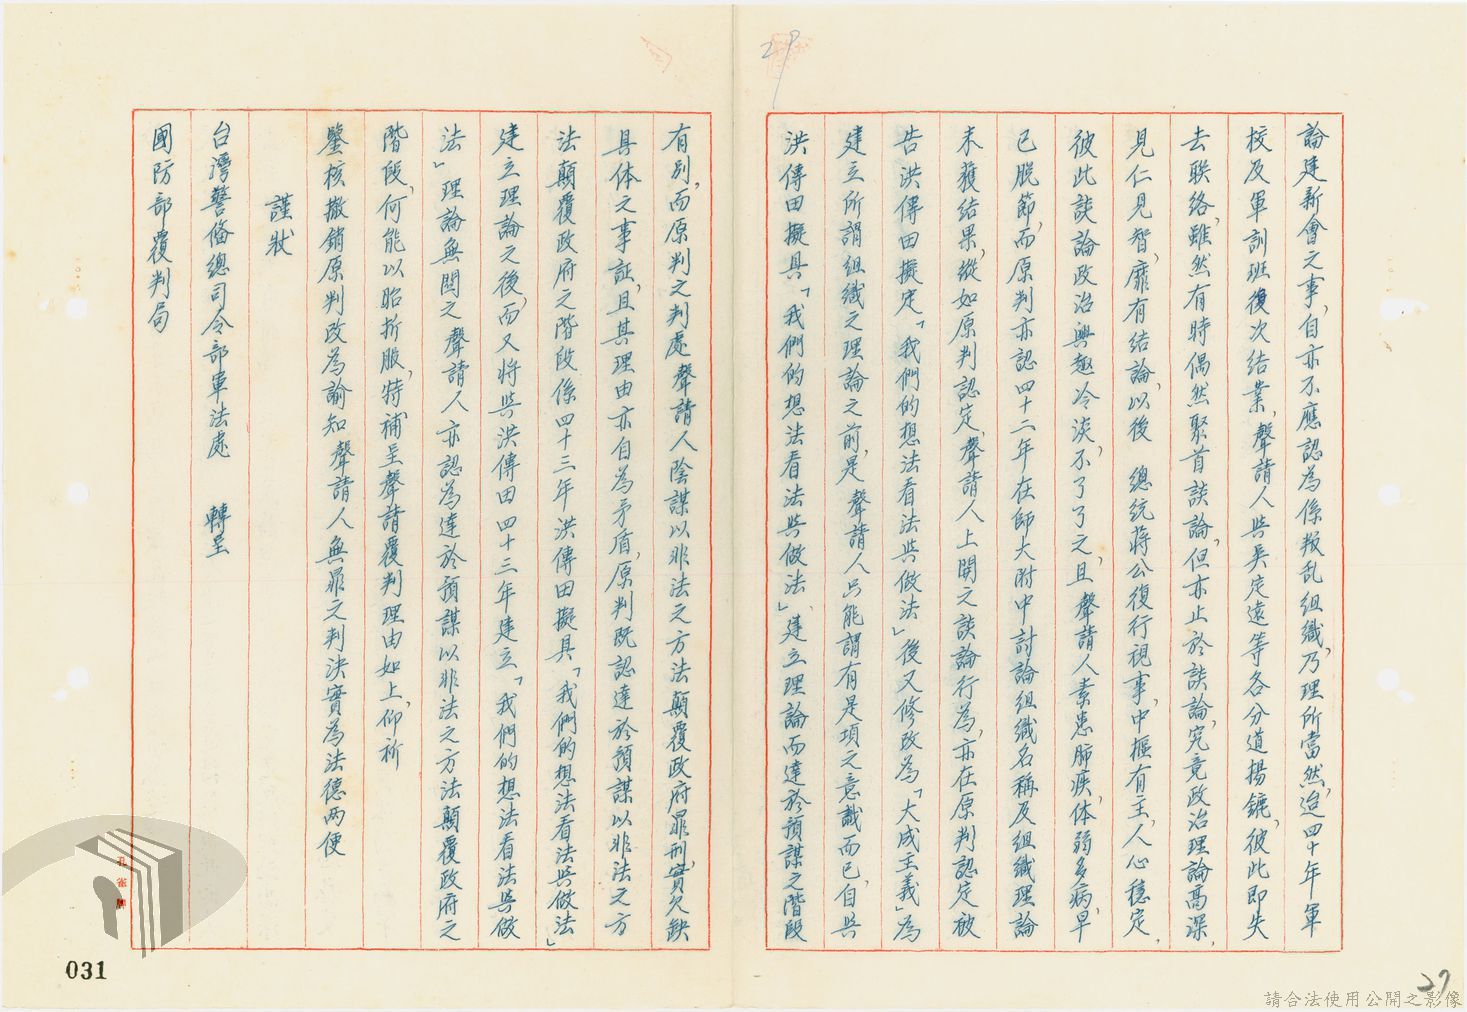 論建新會之事，自亦不應認為係叛乱組織，乃理所當然，迨四十年軍
校及軍訓班復次結業，聲請人与吳定遠等各分道揚鑣，彼此即失
去联络，雖然有時偶然聚首談論，但亦止於談論，究竟政治理論高深，
見仁見智，靡有结論，以後　總統蔣公復行視事，中樞有主，人心穩定，
彼此談論政治興趣冷淡，不了了之，且聲請人素患肺疾，体弱多病，早
已脫節，而原判亦認四十二年在師大附中討論組織名稱及组織理論
未獲结果，縱如原判認定，聲請人上開之談論行為，亦在原判認定被
告洪傳田擬定「我們的想法看法与做法」後又修改為「大成主義」為
建立所謂组織之理論之前，是聲請人只能謂有是項之意識而已，自与
洪傳田擬具「我們的想法看法与做法」建立理論而達於預謀之階段
有別，而原判之判處聲請人陰謀以非法之方法顛覆政府罪刑，實欠缺
具体之事証，且其理由亦自為矛盾，原判既認達於預謀以非法之方
法顛覆政府之階段係四十三年洪傳田擬具「我們的想法看法与做法」
建立理論之後，而又将与洪傳田四十三年建立「我們的想法看法与做
法」理論無関之聲請人亦認為達於預謀以非法之方法顛覆政府之
階段，何能以昭折服，特補呈聲請覆判理由如上，仰祈
鑒核撤銷原判改為諭知聲請人無罪之判決實為法德两便
謹狀
台灣警備總司令部軍法處　轉呈
國防部覆判局
孔雀牌
031
29
27
請合法使用公開之影像